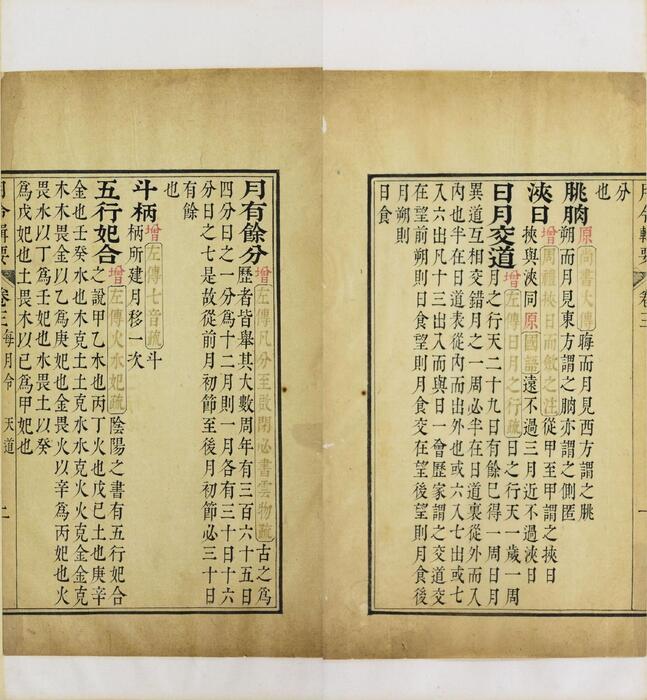 月令輯要 卷三 一
分
也
朓朒 原 尚書大傳 晦而月見西方謂之朓
朔而月見東方謂之朒亦謂之側匿
浹日 增 周禮挾日而斂之注 從甲至甲謂之挾日
挾與浹同 原 國語 遠不過三月近不過浹日
日月交道 增 左傳日月之行疏 日之行天一歲一周
月之行天二十九日有餘已得一周日月
異道互相交錯月之一周必半在日道裏從外而入
內也半在日道表從內而出外也或六入七出或七
入六出凡十三出入而與日一會歷家謂之交道交
在望前朔則日食望則月食交在望後望則月食後
月朔則
日食
月有餘分 增 左傳凡分至啟閉必書雲物疏 古之為
歷者皆舉其大數周年有三百六十五日
四分日之一分為十二月則一月各有三十日十六
分日之七是故從前月初節至後月初節必三十日
有餘
也
斗柄 增 左傳七音疏 斗
柄所建月移一次
五行妃合 增 左傳火水妃疏 陰陽之書有五行妃合
之說甲乙木也丙丁火也戊己土也庚辛
金也壬癸水也木克土土克水水克火火克金金克
木木畏金以乙為庚妃也金畏火以辛為丙妃也火
畏水以丁為壬妃也水畏土以癸
為戊妃也土畏木以己為甲妃也
月令輯要 卷三 每月令 天道 二